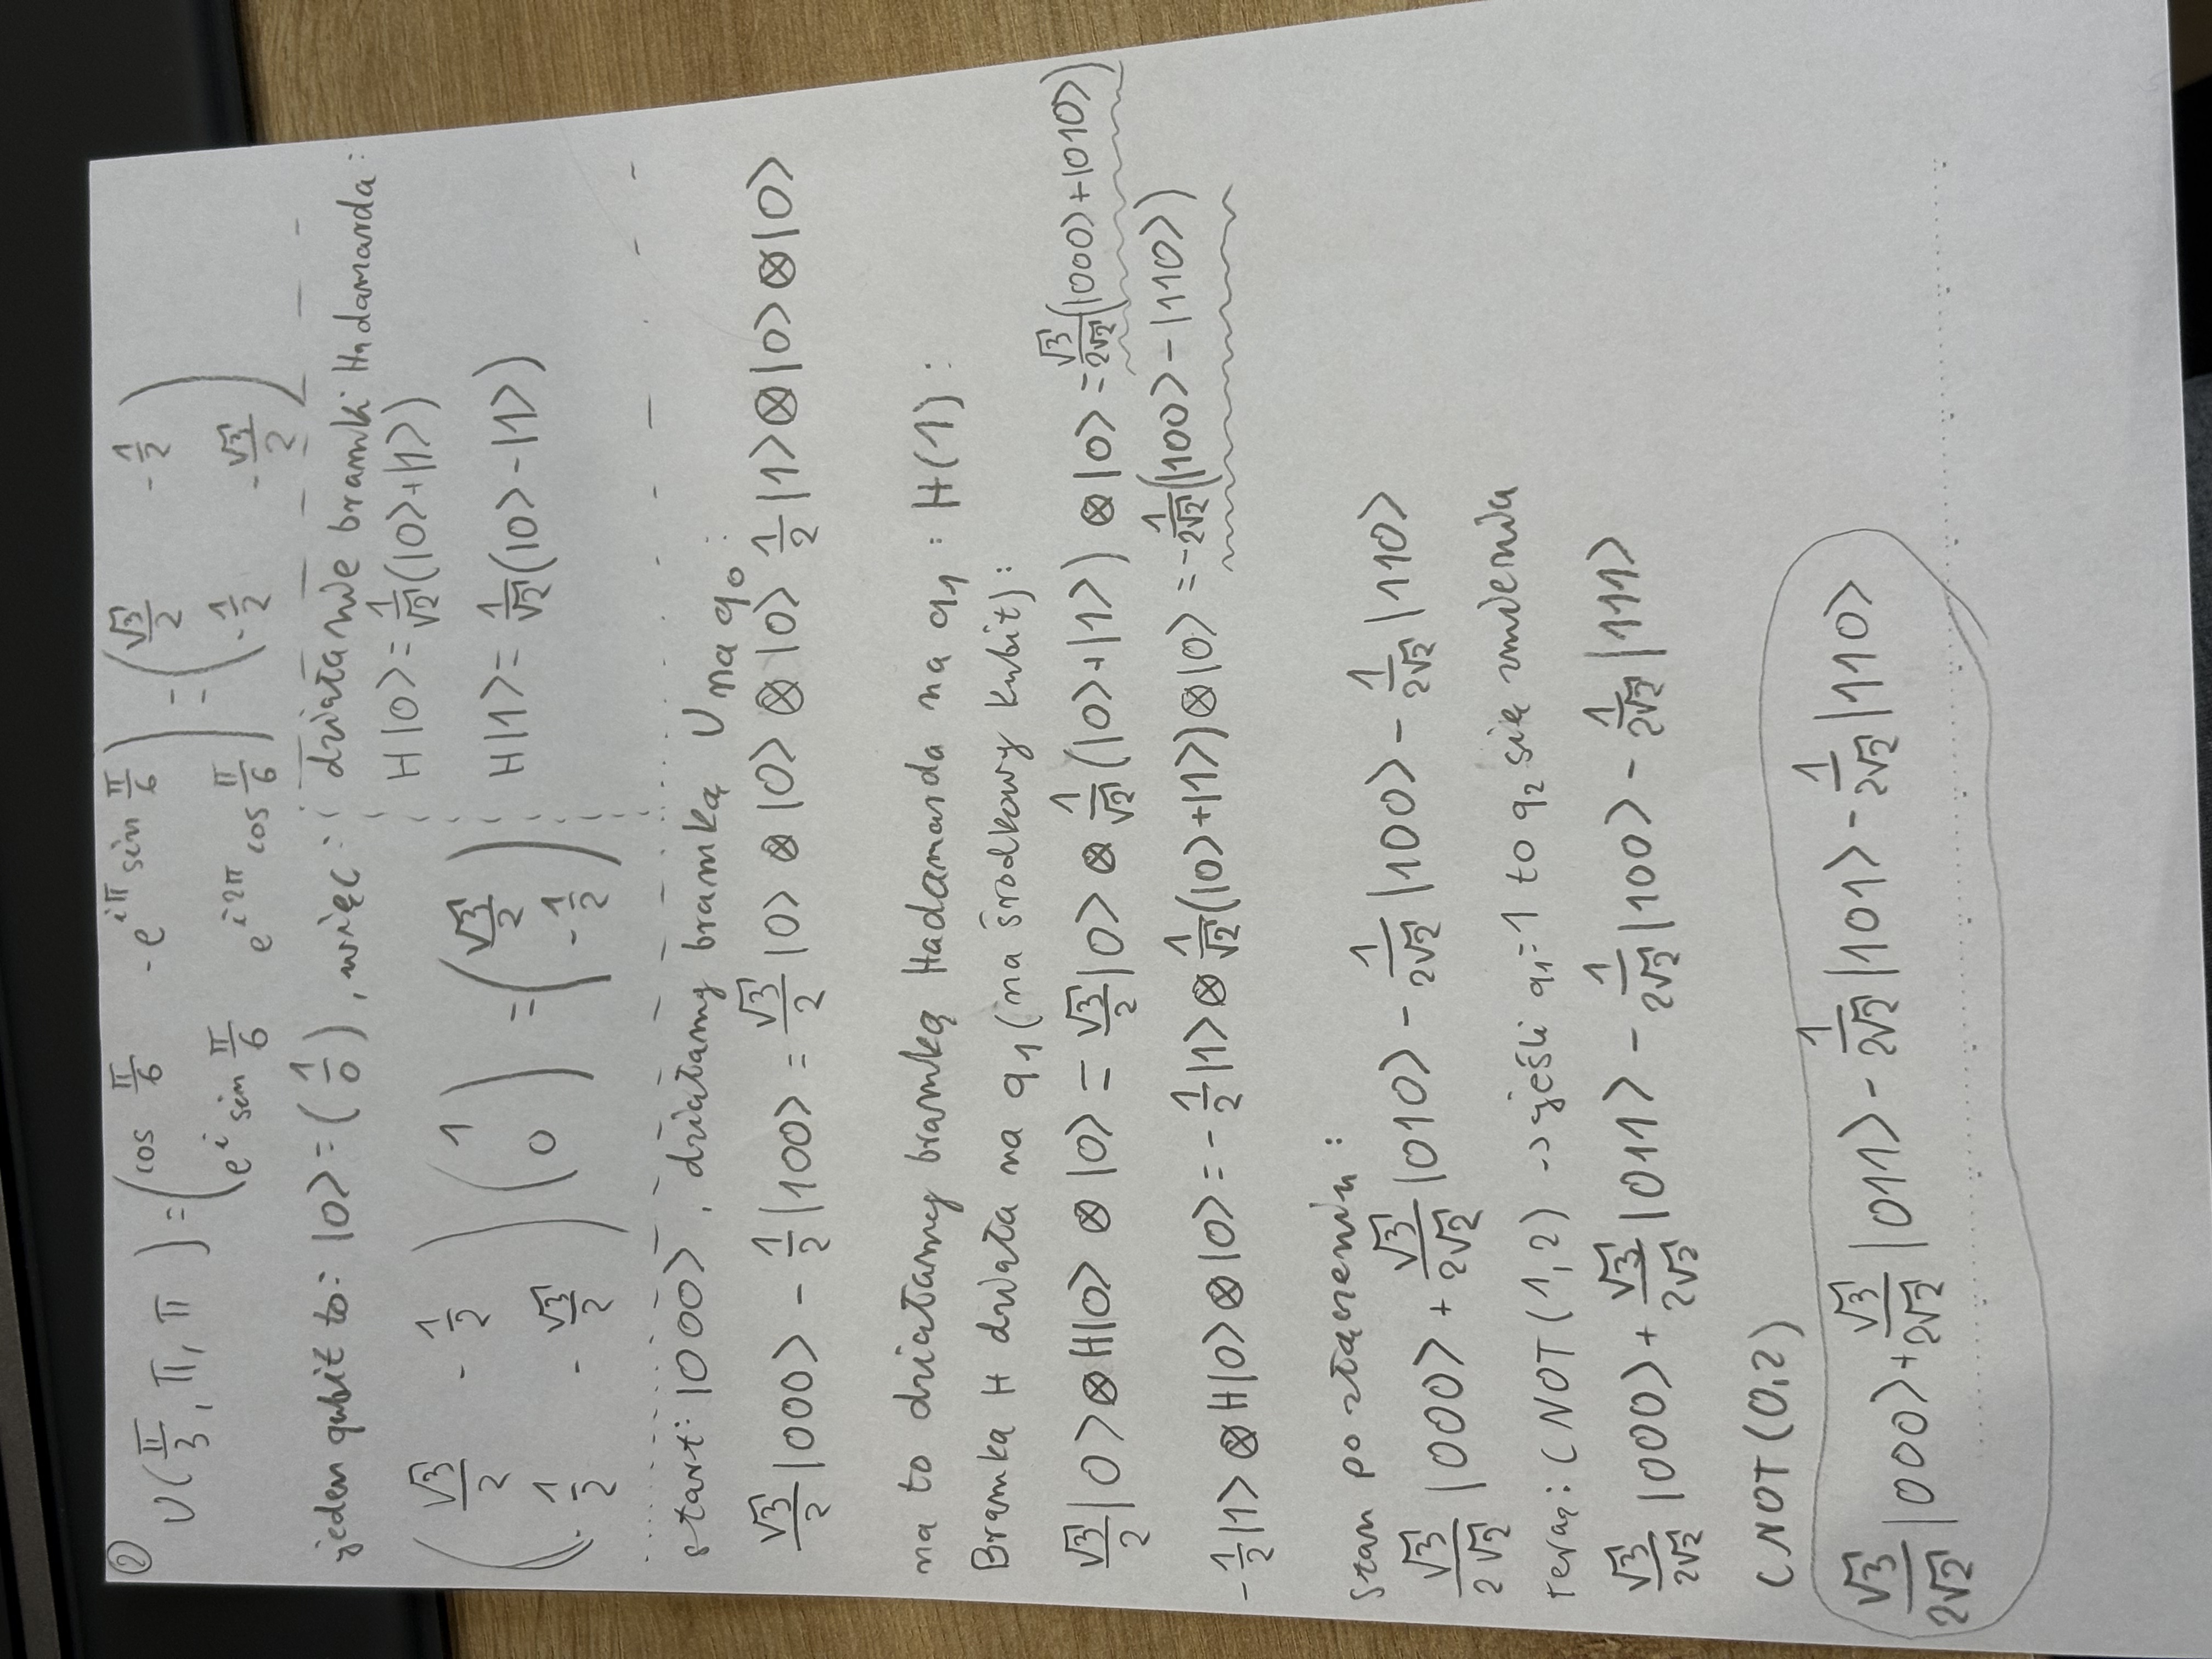 ②
U(π/3, π, π) = (cos π/6  -e^{iπ} sin π/6; e^{i} sin π/6  e^{i2π} cos π/6) = (√3/2  -1/2; -1/2  -√3/2)
jeden qubit to: |0> = (1/0), więc:
(√3/2  -1/2; -1/2  -√3/2) (1; 0) = (√3/2; -1/2)
działanie bramki Hadamarda:
H|0> = 1/√2 (|0>+|1>)
H|1> = 1/√2 (|0>-|1>)
start: |000>, działamy bramką U na q₀:
√3/2 |000> - 1/2 |100> = √3/2 |0> ⊗ |0> ⊗ |0> 1/2 |1> ⊗ |0> ⊗ |0>
na to działamy bramką Hadamarda na q₁ : H(1) :
Bramka H działa na q₁ (na środkowy kubit):
√3/2 |0> ⊗ H|0> ⊗ |0> = √3/2 |0> ⊗ 1/√2 (|0>+|1>) ⊗ |0> = √3/2√2 (|000>+|010>)
-1/2 |1> ⊗ H|0> ⊗ |0> = -1/2 |1> ⊗ 1/√2 (|0>+|1>) ⊗ |0> = -1/2√2 (|100> - |110>)
stan po złączeniu:
√3/2√2 |000> + √3/2√2 |010> - 1/2√2 |100> - 1/2√2 |110>
teraz: CNOT(1,2) -> jeśli q₁=1 to q₂ się zmienia
√3/2√2 |000> + √3/2√2 |011> - 1/2√2 |100> - 1/2√2 |111>
CNOT(0,2)
√3/2√2 |000> + √3/2√2 |011> - 1/2√2 |101> - 1/2√2 |110>